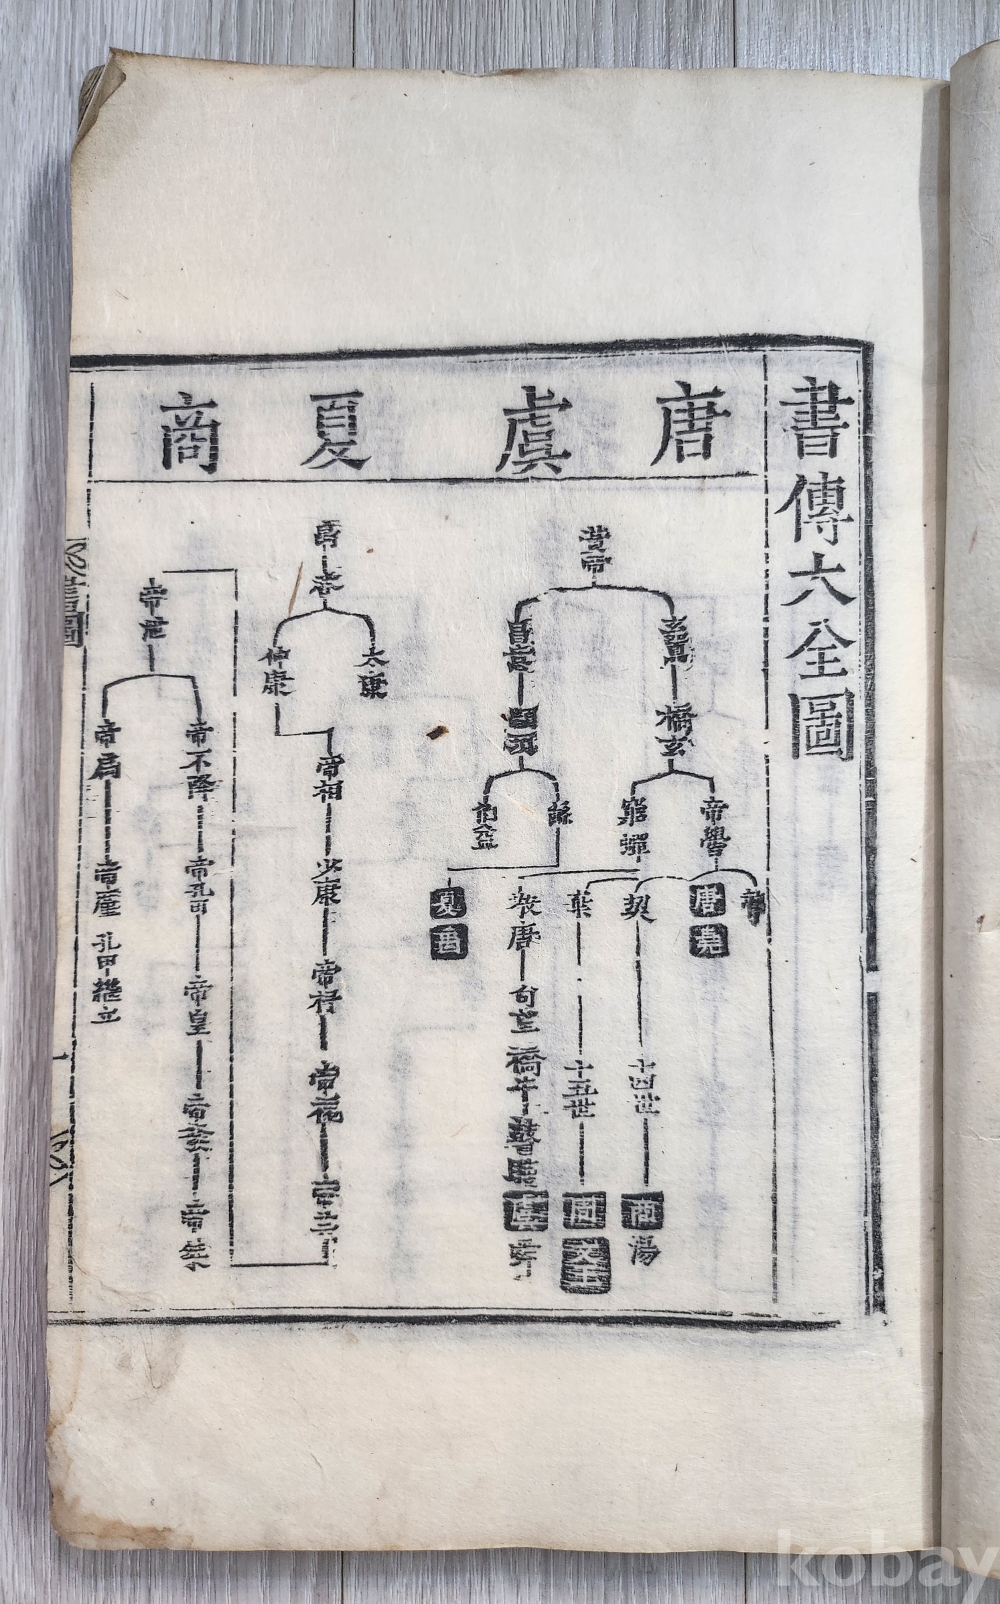 書傳大全圖
唐 虞 夏 商
黃帝
玄囂
橋玄
帝嚳
唐堯
契
十四世
商湯
十五世
周文王
窮蟬
敬康
句芒
橋牛
瞽瞍
虞舜
昌意
顓頊
鯀
伯益
夏禹
禹
啓
太康
仲康
帝相
少康
帝杼
帝芒
帝泄
帝不降
帝孔甲
帝皇
帝發
帝桀
帝扃
帝廑
孔甲繼立
kobay